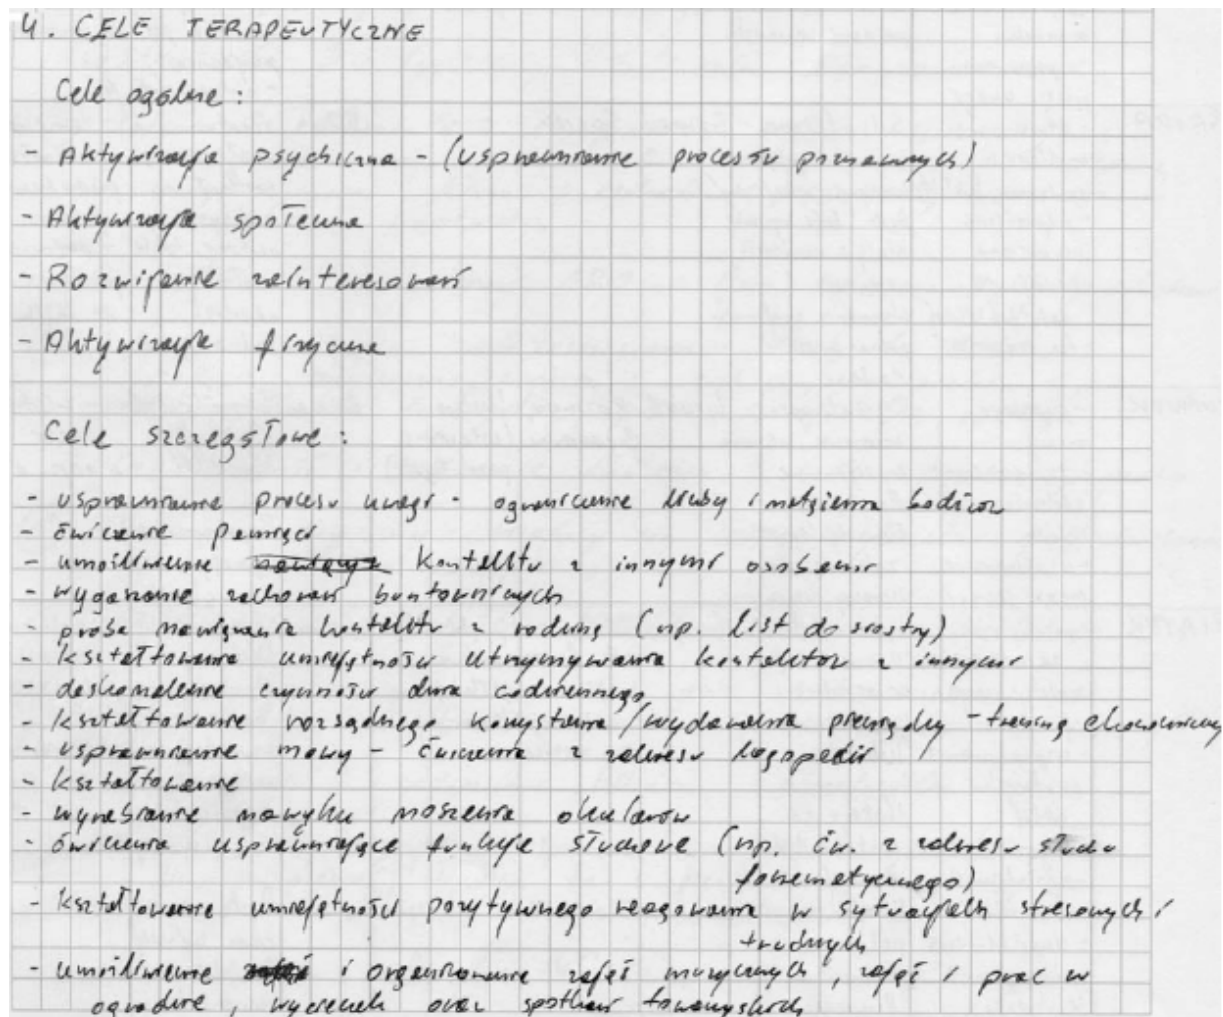 4. CELE TERAPEUTYCZNE
Cele ogólne:
- Aktywizacja psychiczna - (usprawnianie procesów poznawczych)
- Aktywizacja społeczna
- Rozwijanie zainteresowań
- Aktywizacja fizyczna
Cele szczegółowe:
- usprawnianie procesu uwagi - ograniczenie liczby i natężenia bodźców
- ćwiczenie pamięci
- umożliwienie kontaktu z innymi osobami
- wygaszanie zachowań buntowniczych
- próba nawiązania kontaktu z rodziną (np. list do siostry)
- kształtowanie umiejętności utrzymywania kontaktów z innymi
- doskonalenie czynności dnia codziennego
- kształtowanie rozsądnego korzystania/wydawania pieniędzy - trening ekonomiczny
- usprawnianie mowy - ćwiczenia z zakresu logopedii
- kształtowanie
- wyrabianie nawyku noszenia okularów
- ćwiczenia usprawniające funkcje słuchowe (np. ćw. z zakresu słuchu
fonematycznego)
- kształtowanie umiejętności pozytywnego reagowania w sytuacjach stresowych i
trudnych
- umożliwienie i organizowanie zajęć muzycznych, zajęć i prac w
ogrodzie, wycieczek oraz spotkań towarzyskich